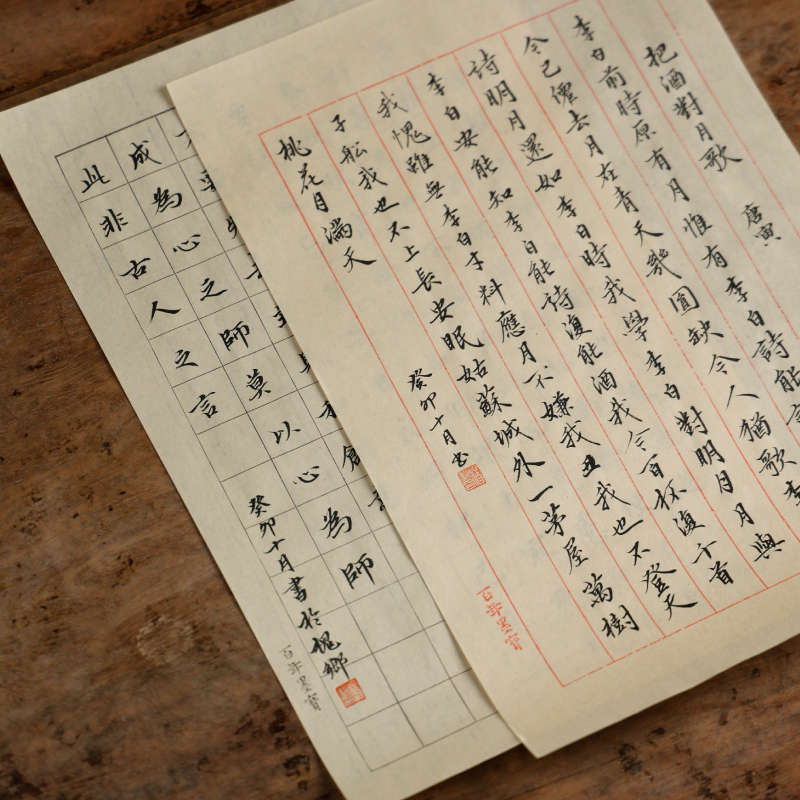 把酒對月歌 唐寅
李白前時原有月惟有李白詩能
今已僊去月在青天幾圓缺今人猶歌李
詩明月還如李白時我學李白對明月月與
李白安能知李白能詩復能酒我今百杯復千首
我愧雖無李白才料應月不嫌我丑我也不登天
子船我也不上長安眠姑蘇城外一茅屋萬樹
桃花月滿天
癸卯十月书
百年墨寶
成為心之師莫以心為師
此非古人之言
癸卯十月書於槐鄉
百年墨寶